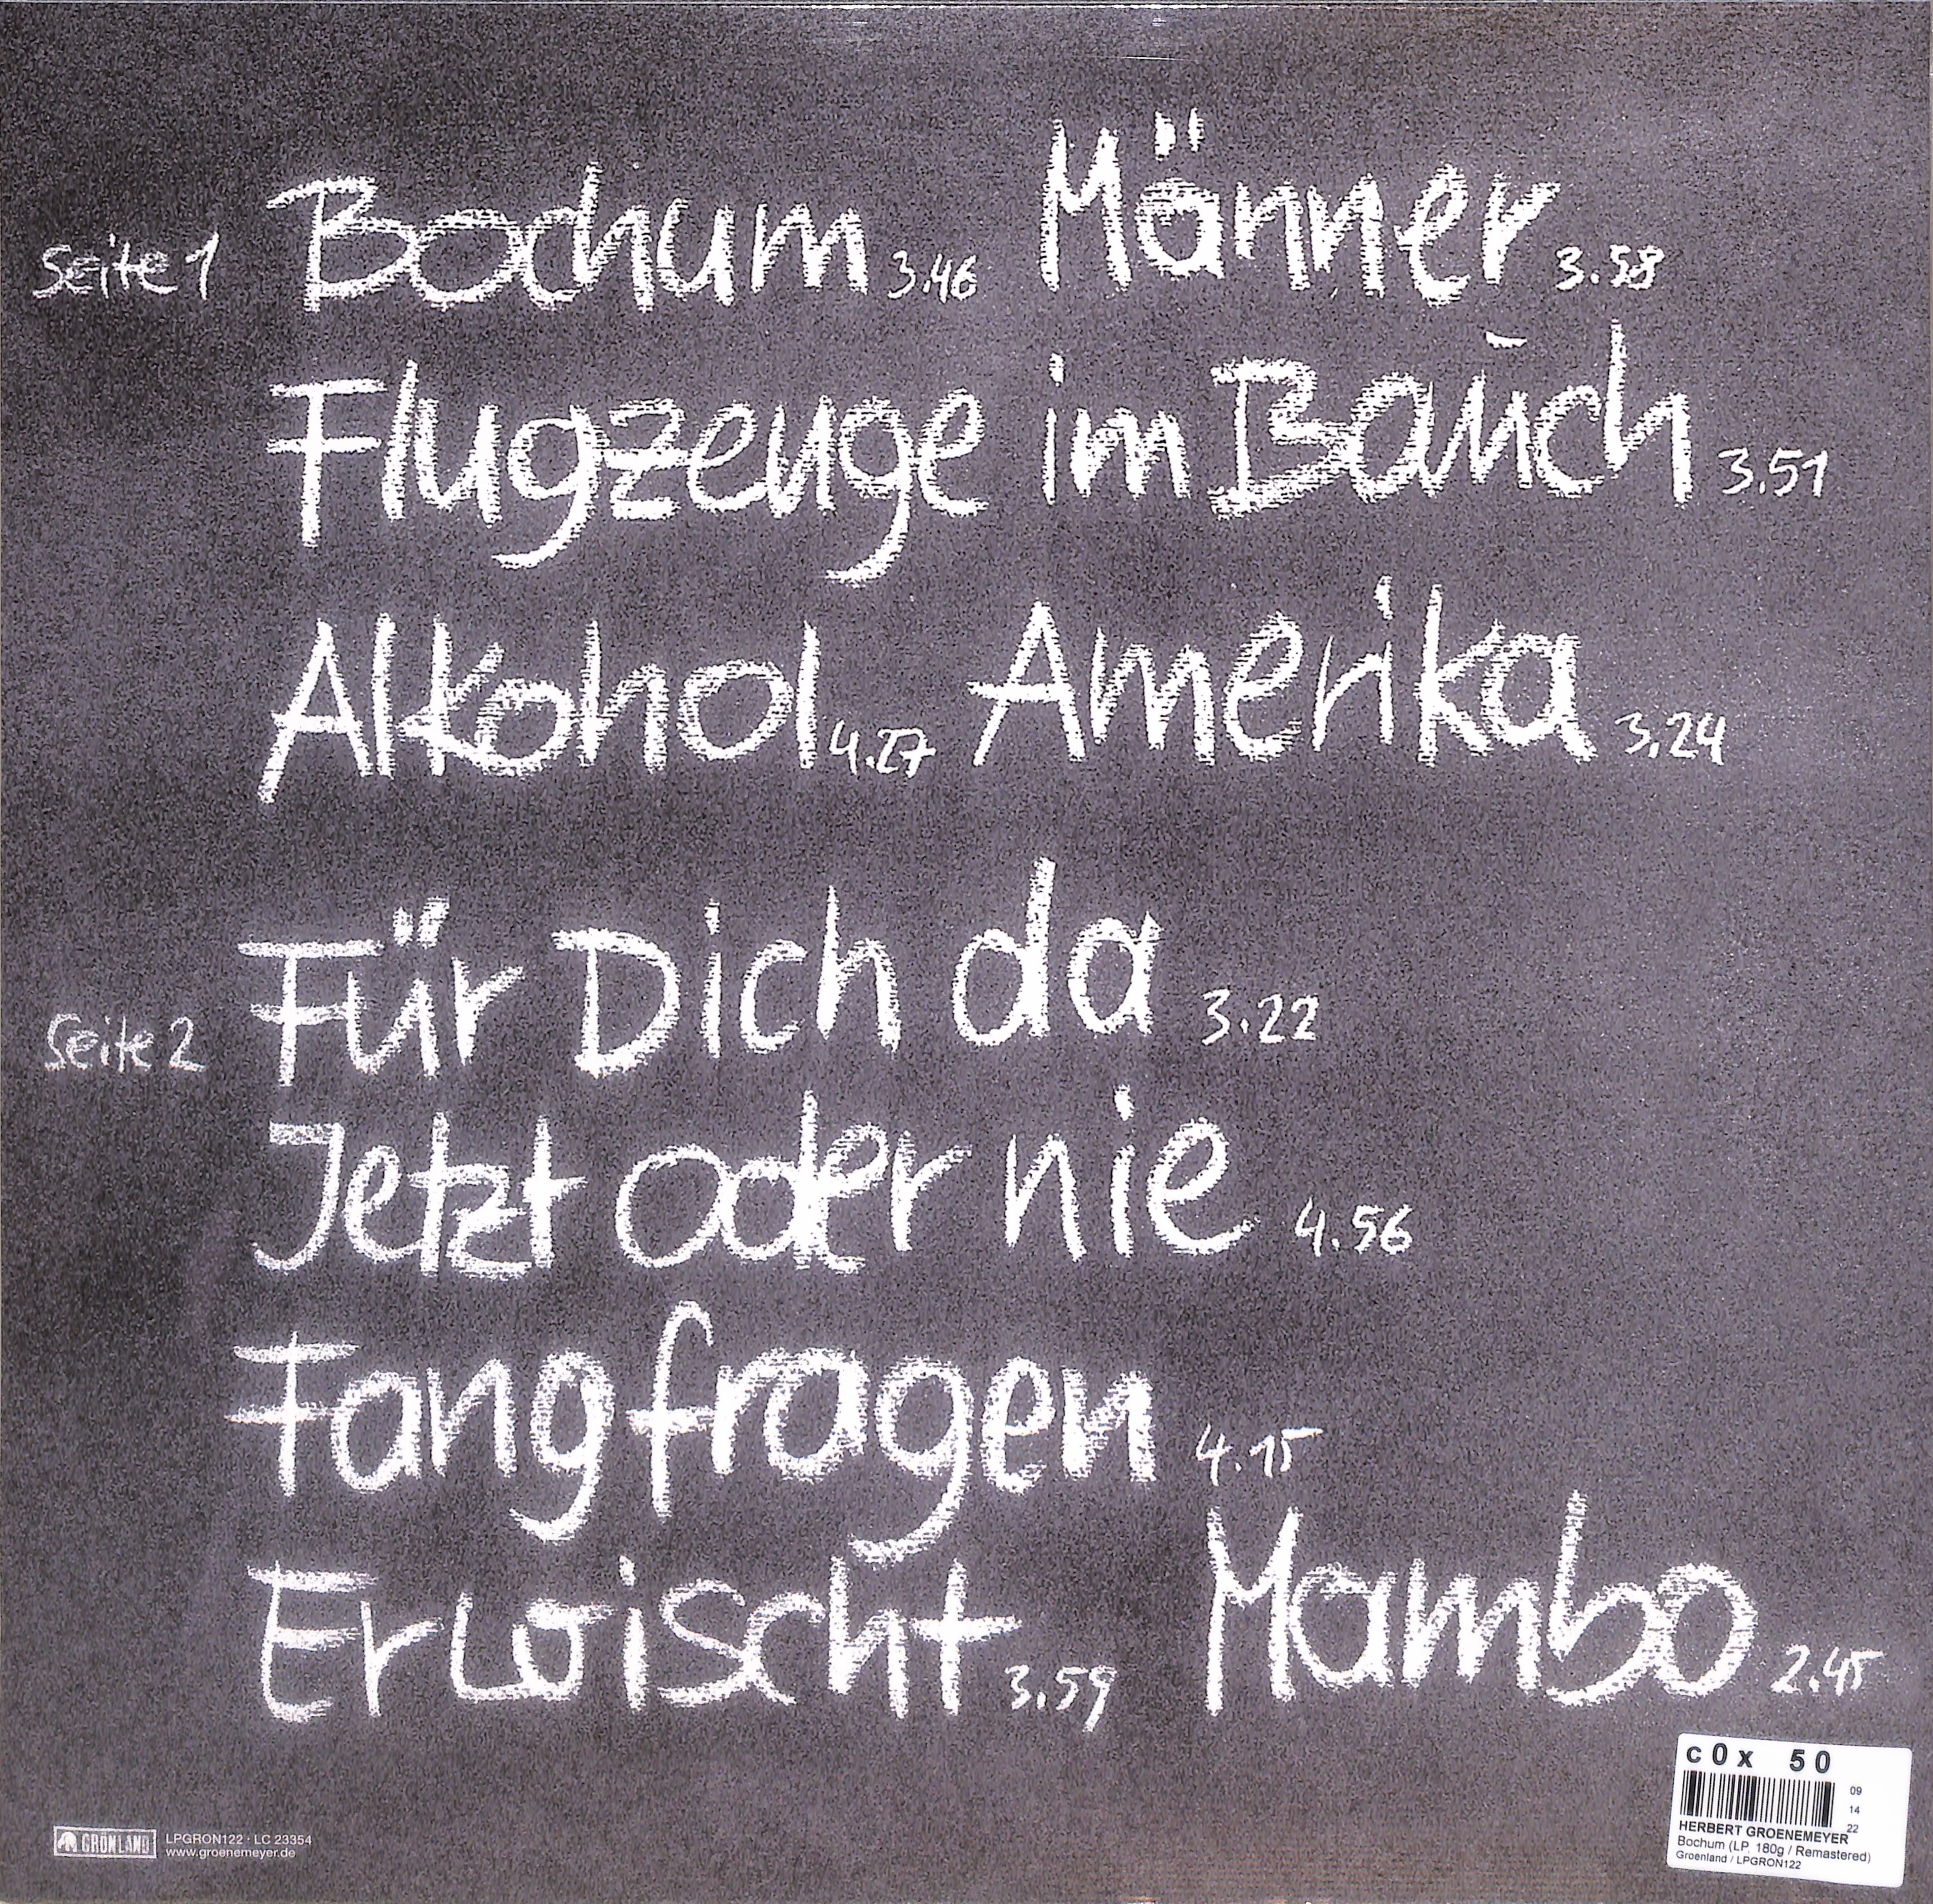 Seite 1 Bochum 3.46 Männer 3.58
Flugzeuge im Bauch 3.51
Alkohol 4.27 Amerika 3.24
Seite 2 Für Dich da 3.22
Jetzt oder nie 4.56
Fangfragen 4.15
Erwischt 3.59 Mambo 2.45
GRÖNLAND LPGRON122 · LC 23354
www.groenemeyer.de
c0x 50
09
14
22
HERBERT GROENEMEYER
Bochum (LP, 180g / Remastered)
Groenland / LPGRON122